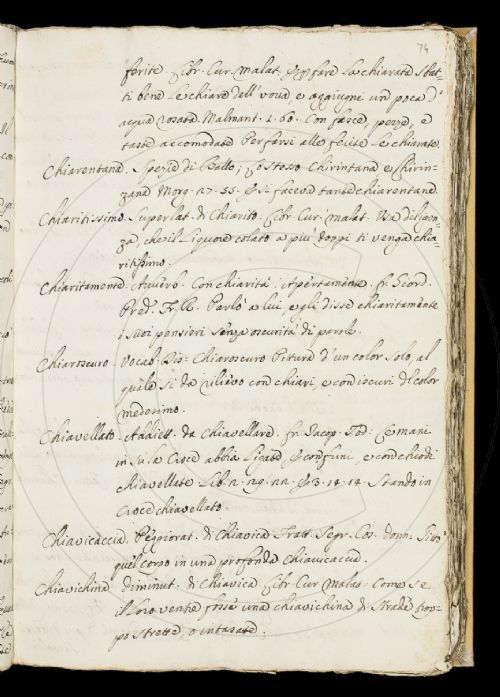 74
ferite Libr. Cur. malat. E p fare la chiarata sbat-
ti bene le chiare dell'uova, e aggiugni un poca d'
acqua rosata. Malmant. 2. 60. Con farce, pezze, e
taste accomodate Per farsi alle ferite le chiarate.
Chiarentana. Spezie di Ballo; lo stesso Chirintana e Chirin-
zana Morg. 27. 55. E si faceva tante chiarentane.
Chiaritissimo. Superlat. di Chiarito. Libr. Cur. malat. Usa diligen-
za, che il liquore colato a più doppi ti venga chia-
ritissimo.
Chiaritamente. Avverb. Con chiarità. Apertamente. fr. Giord.
Pred. Parlò a lui, e gli disse chiaritamente
i suoi pensieri senza oscurità di parole.
Chiaroscuro. Vocab. Dis: Chiaroscuro Pittura d'un color solo, al
quale si dà rilievo con chiari, e con iscuri del color
medesimo.
Chiavellato. Addiett. da Chiavellare. fr. Jacop. Tod: Le mani
in su la Croce abbia Legate con funi, e con chiodi
chiavellate Lib. 2. 29. 22. E 3. 14. 14. Stando in
Croce chiavellato.
Chiavicaccia. Peggiorat. di Chiavica Tratt. Segr. Cos. donn:
quel corpo in una profonda chiavicaccia.
Chiavichina diminut. di Chiavica Libr. Cur malat. Come se
il loro ventre fosse una chiavichina di strade trop-
po strette, o intasate;